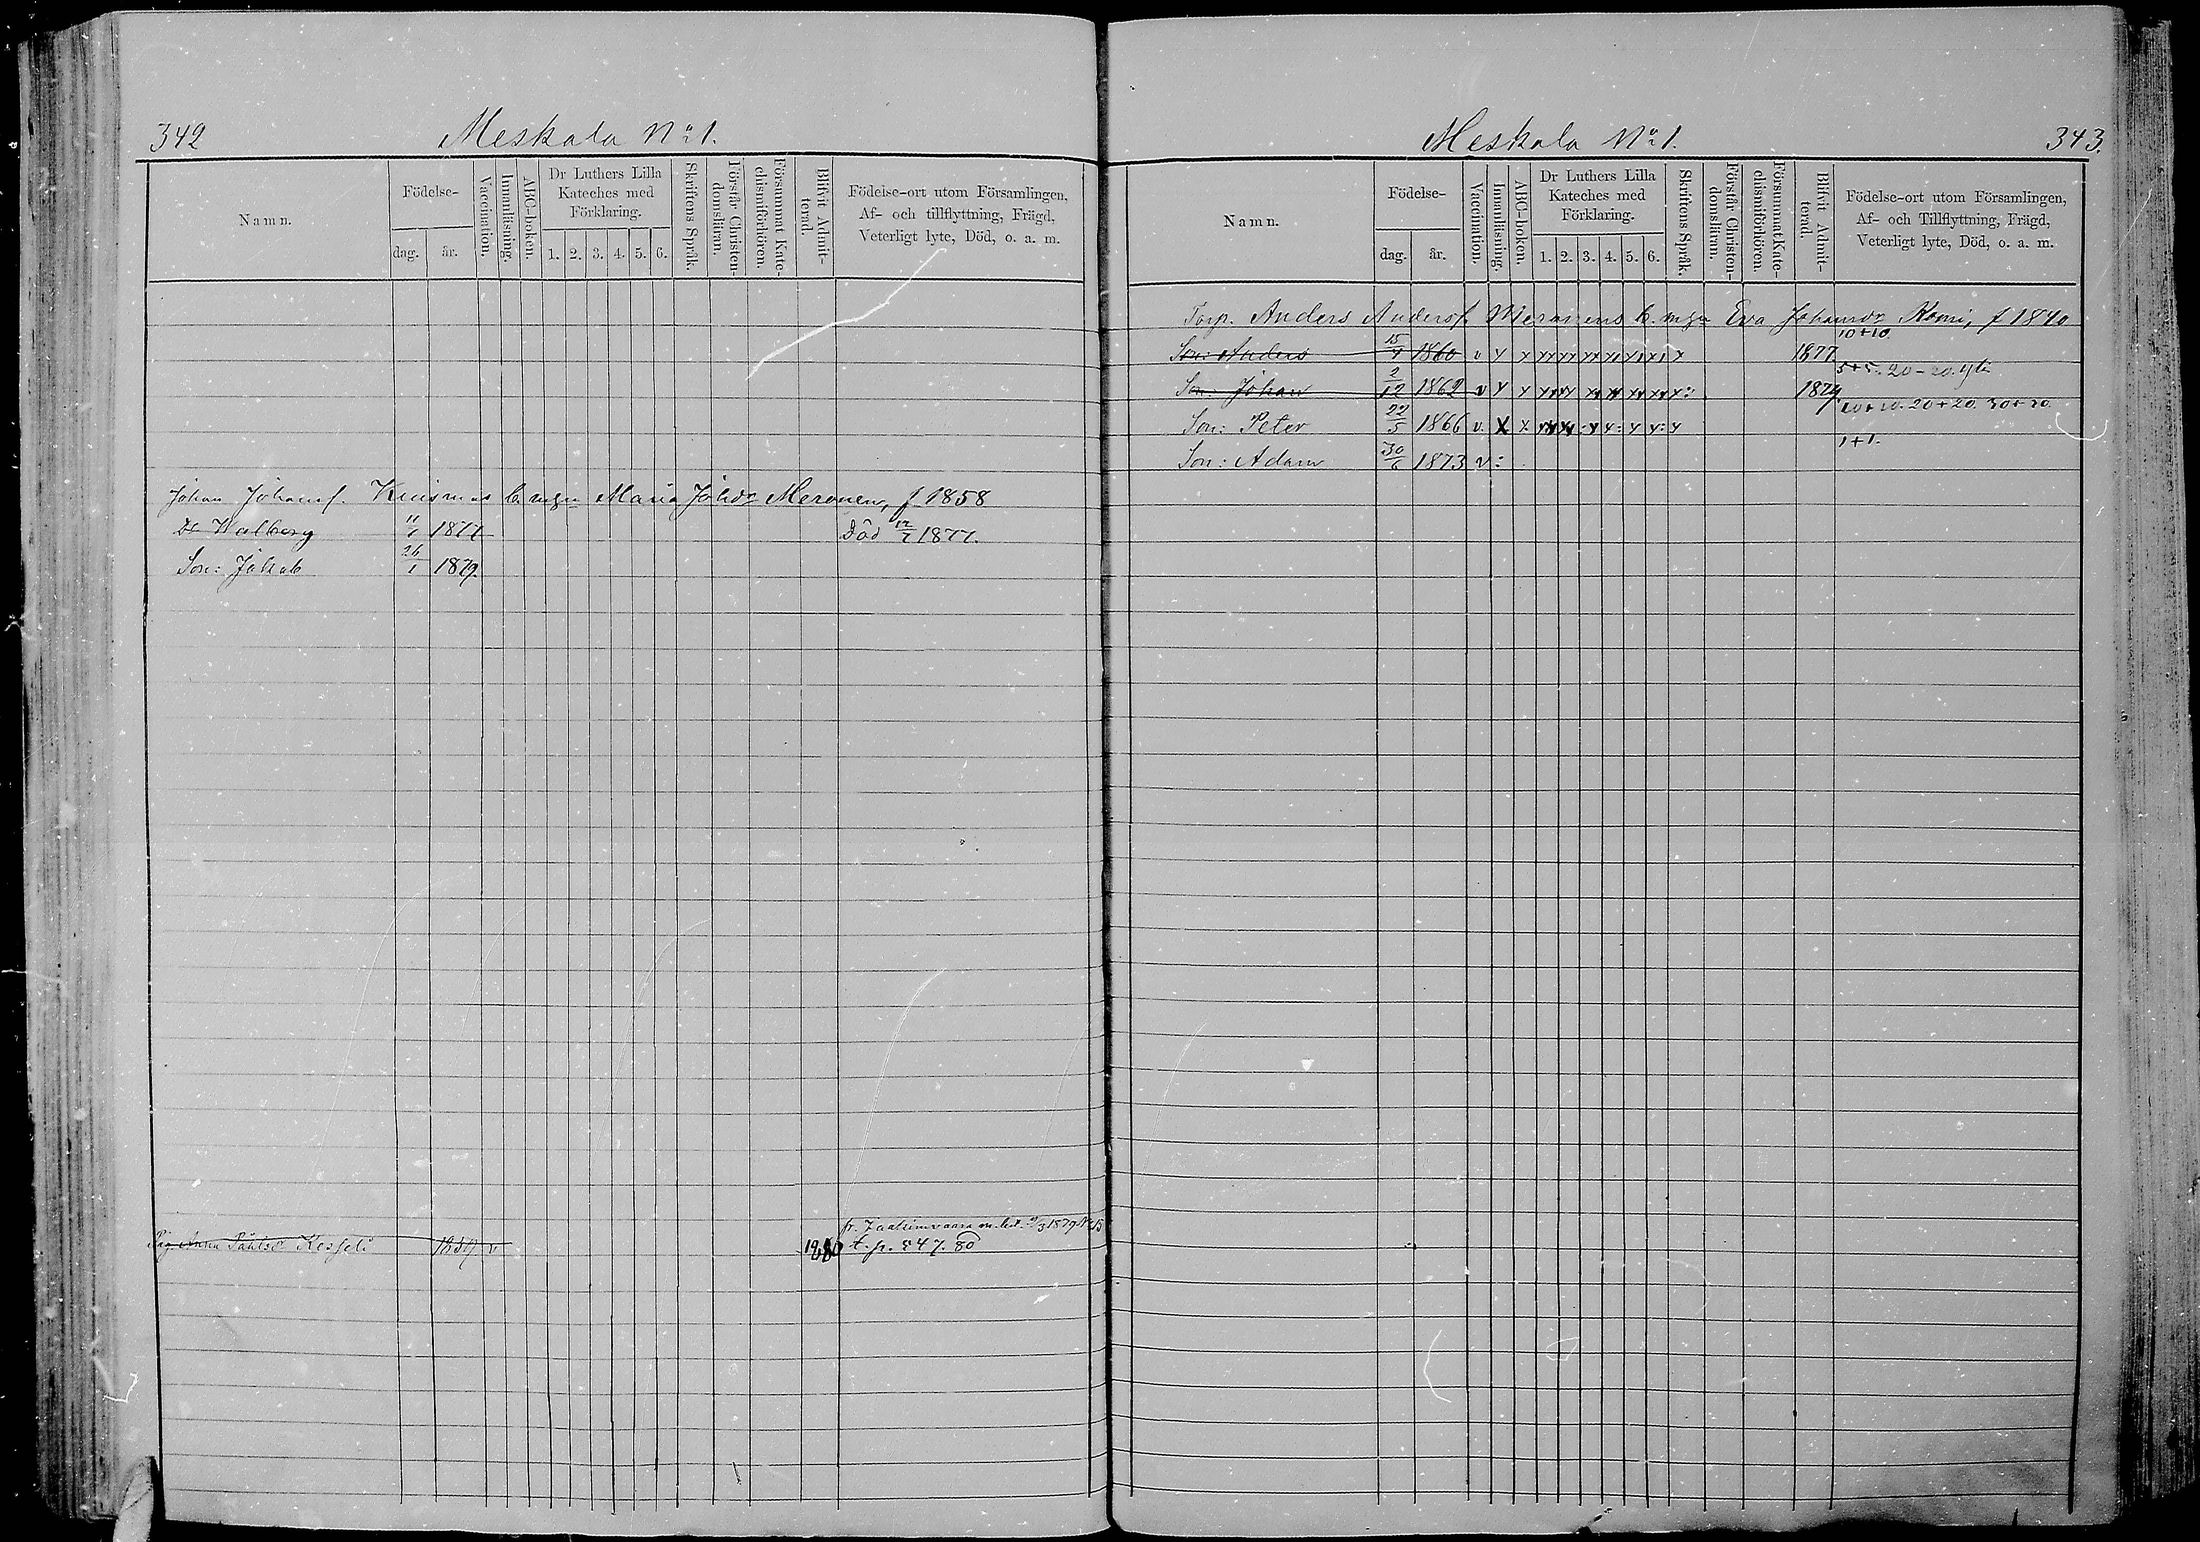 342 Meskala No 1.
Namn. Födelse- dag. år. Vaccination. Innanläsning. ABC-boken. Dr Luthers Lilla Kateches med Förklaring. 1. 2. 3. 4. 5. 6. Skriftens Språk. Förstår Christendomsläran. Försummat Katechismiförhören. Blifvit Admitterad. Födelse-ort utom Församlingen, Af- och tillflyttning, Frägd, Veterligt lyte, Död, o. a. m.
Johan Johansf. Kuismas h. mgn Maria Johdr Meronen, f 1858
Dr Walberg 11/7 1877 Död 12/7 1877.
Son: Johab 26/1 1879.
fr. Jaakimvaara m. bet. 9/3 1879 No 15
Pig Anna Påhlsd Kesseli 1859 v 1880 t. p. 547. 80
Meskala No 1. 343.
Namn. Födelse- dag. år. Vaccination. Innanläsning. ABC-boken. Dr Luthers Lilla Kateches med Förklaring. 1. 2. 3. 4. 5. 6. Skriftens Språk. Förstår Christendomsläran. Försummat Katechismiförhören. Blifvit Admitterad. Födelse-ort utom Församlingen, Af- och Tillflyttning, Frägd, Veterligt lyte, Död, o. a. m.
Torp. Anders Andersf. Meronens h. mgn Eva Johansdr Komi, f 1840
Son: Anders 15/4 1860 v 1877 10+10
Son: Johan 2/12 1862 v 1879 5+5. 20-20.
Son: Peter 22/5 1866 v. 10+10. 20+20. 30+30
Son: Adam 30/6 1873 v: 1+1.